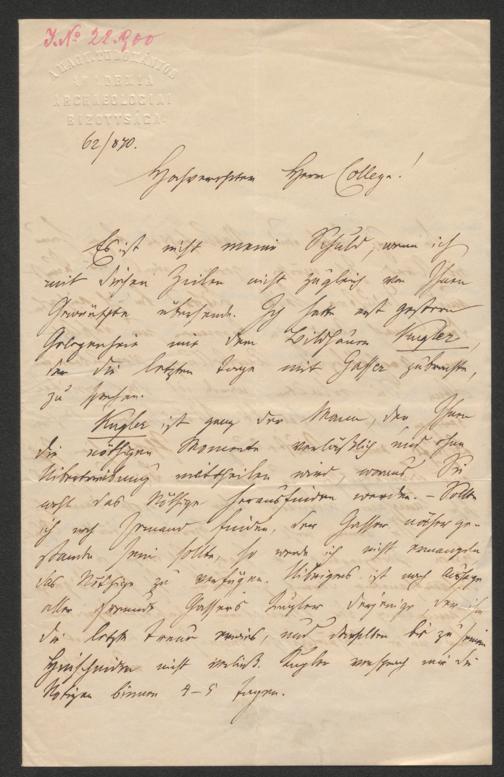 J. No 28.900
A MAGY. TUDOMÁNYOS
AKADEMIA
ARCHAEOLOGIAI
BIZOTTSÁGA.
62/870.
Hochverehrter Herr College!
Es ist nicht meine Schuld, wenn ich
mit diesen Zeilen nicht zugleich von Ihnen
Gewünschte übersende. Ich hatte erst gestern
Gelegenheit mit dem Bildhauer Kugler,
der die letzten Tage mit Gasser zubrachte,
zu sprechen.
Kugler ist ganz der Mann, der Ihnen
die nöthigen Momente verläßlich und ohne
Übertreibung mittheilen wird woraus Sie
wohl das Nöthige herausfinden werden. – Sollte
ich noch Jemand finden, der Gasser näher ge-
standen sein sollte, so werde ich nicht ermangeln
das Nöthige zu verfügen. Übrigens ist nach Aussage
aller Freunde Gassers Kugler derjenige, der ihm
die letzte Treue erwies, und denselben bis zu seinem
Hinscheiden nicht verließ. Kugler versprach mir die
Notizen binnen 4–5 Tagen.